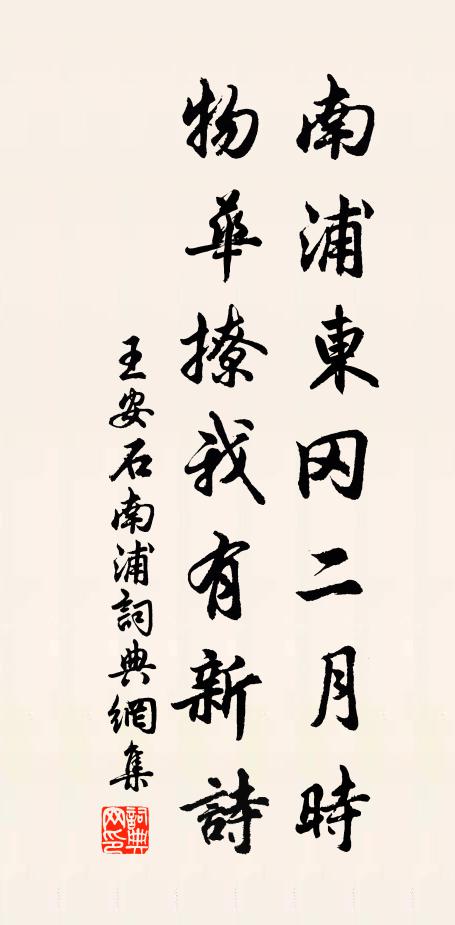 南浦東冈二月時
物華撩我有新詩
王安石南浦詞典網集
詞典
网印